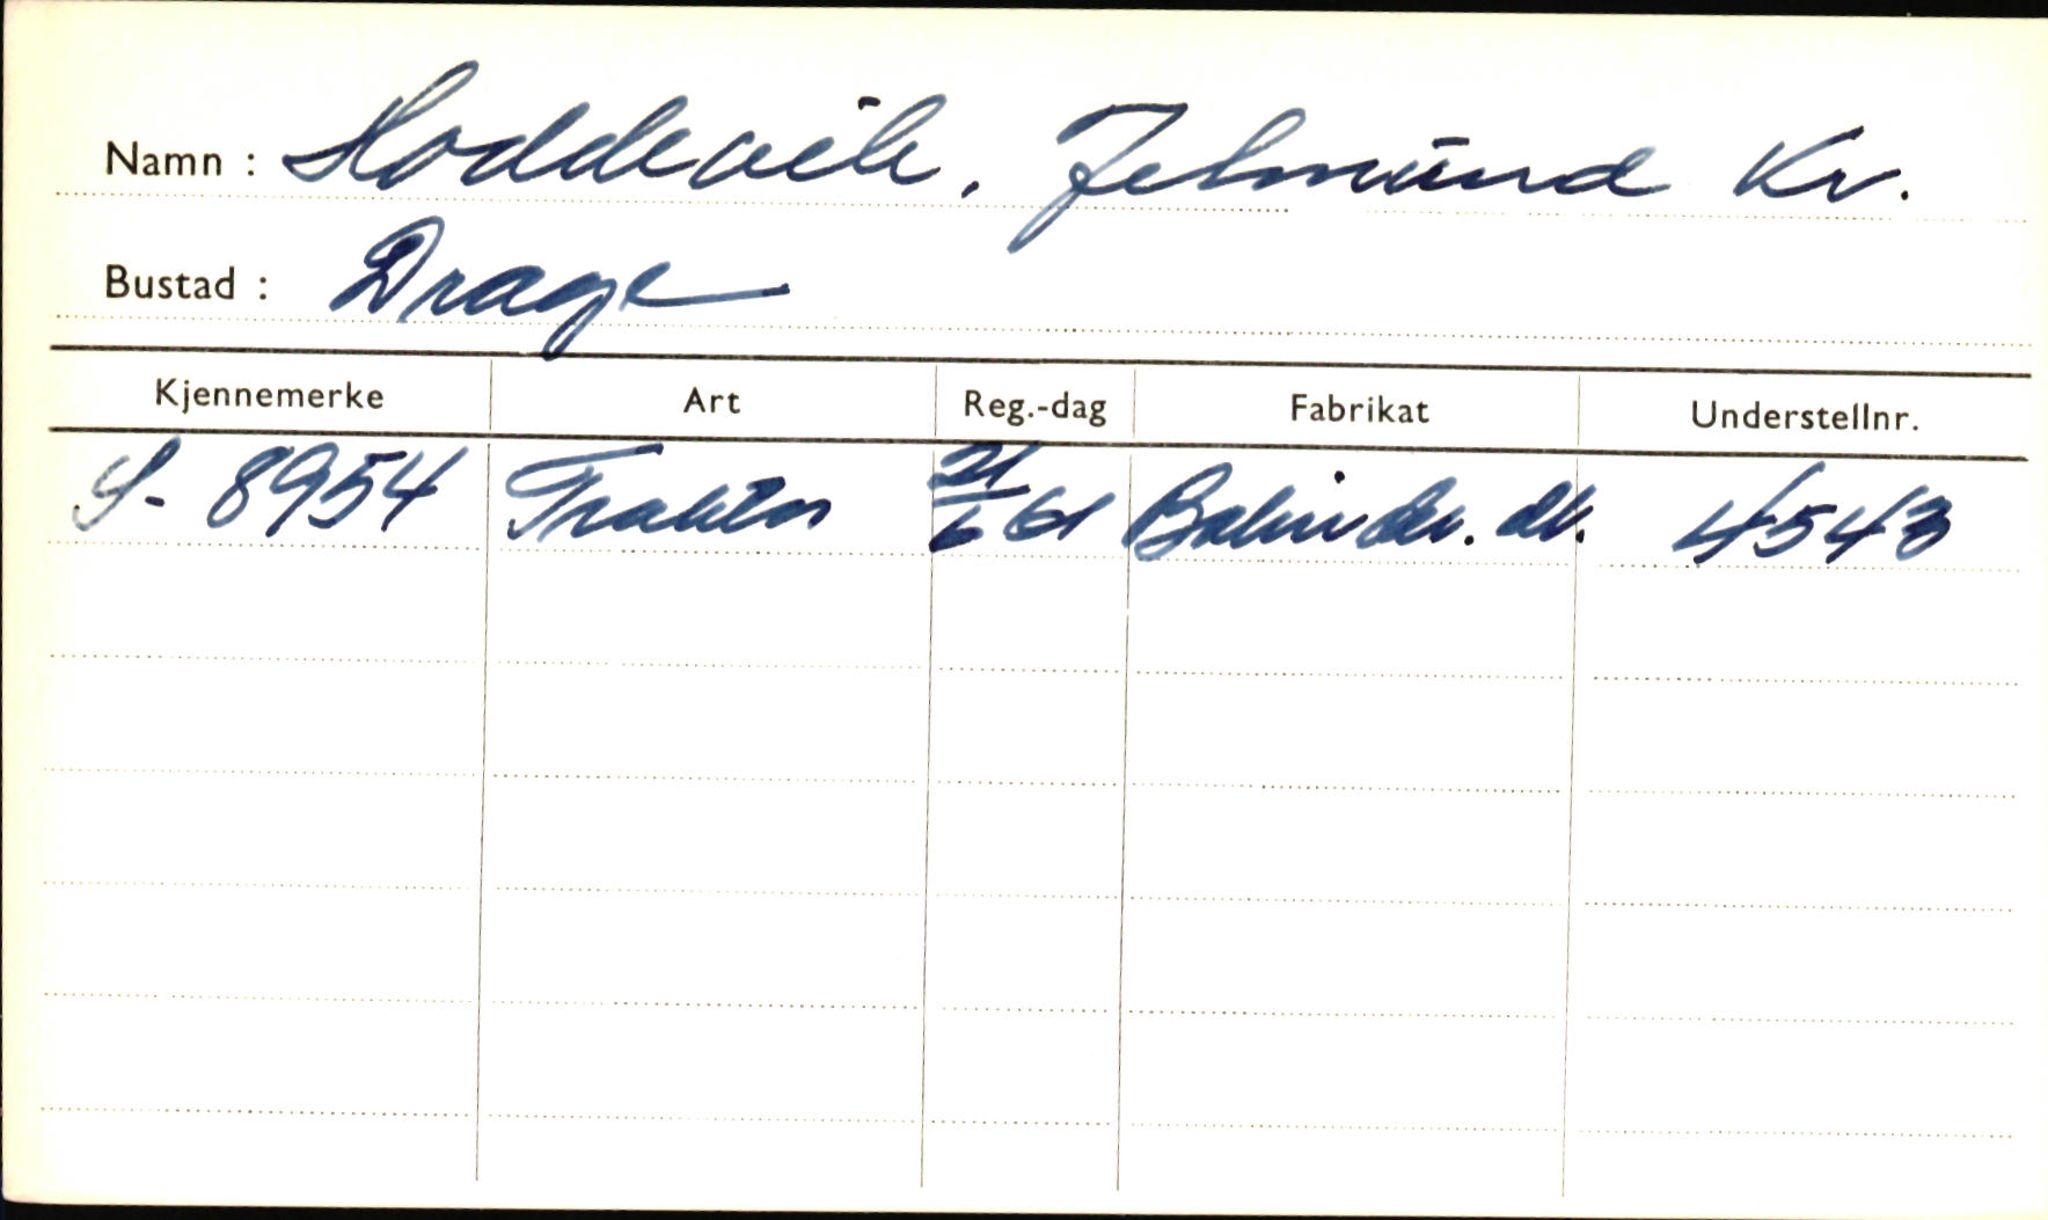 Namn : Hoddevik, Jetmund Kr.
Bustad : Drage
Kjennemerke Art Reg.-dag Fabrikat Understellnr.
S-8954 Traktor 21/6 61 Bolinder. 4543